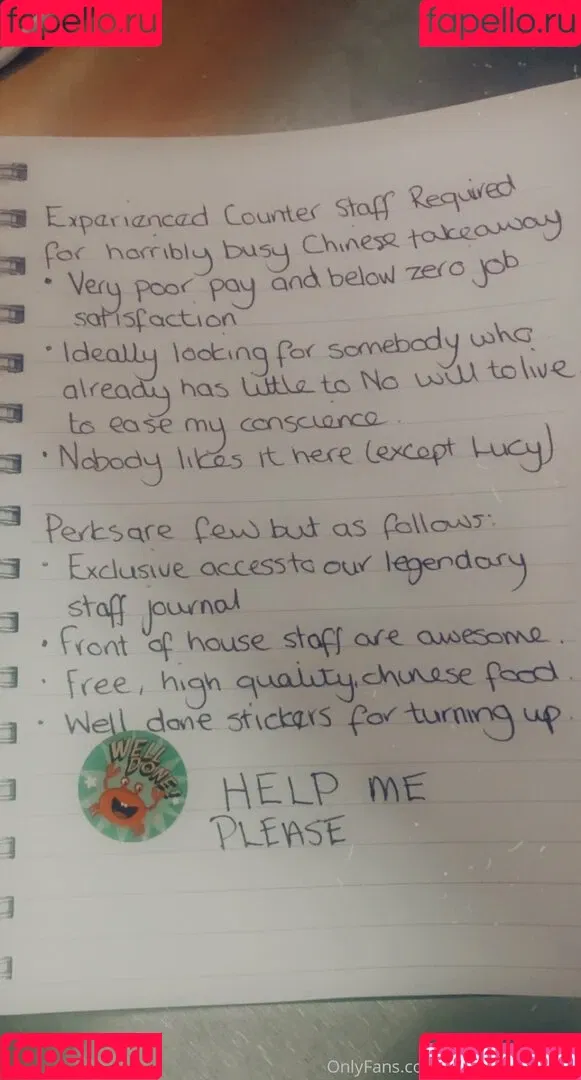 fapello.ru fapello.ru
Experienced Counter Staff Required
for horribly busy Chinese takeaway
• Very poor pay and below zero job
satisfaction
• Ideally looking for somebody who
already has little to No will to live
to ease my conscience.
• Nobody likes it here (except Lucy)
Perks are few but as follows:
• Exclusive access to our legendary
staff journal
• Front of house staff are awesome.
• Free, high quality, chinese food.
• Well done stickers for turning up.
WELL
DONE!
HELP ME
PLEASE
fapello.ru fapello.ru
OnlyFans.co